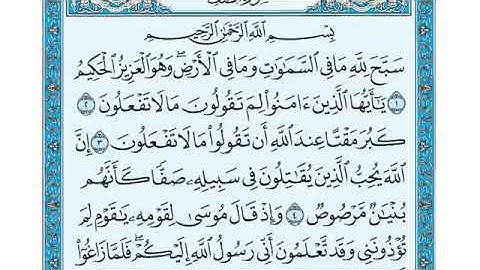 بِسْمِ ٱللَّهِ ٱلرَّحْمَٰنِ ٱلرَّحِيمِ
سَبَّحَ لِلَّهِ مَا فِى ٱلسَّمَٰوَٰتِ وَمَا فِى ٱلْأَرْضِ ۖ وَهُوَ ٱلْعَزِيزُ ٱلْحَكِيمُ
١ يَٰٓأَيُّهَا ٱلَّذِينَ ءَامَنُوا۟ لِمَ تَقُولُونَ مَا لَا تَفْعَلُونَ ٢
كَبُرَ مَقْتًا عِندَ ٱللَّهِ أَن تَقُولُوا۟ مَا لَا تَفْعَلُونَ ٣ إِنَّ
ٱللَّهَ يُحِبُّ ٱلَّذِينَ يُقَٰتِلُونَ فِى سَبِيلِهِۦ صَفًّا كَأَنَّهُم
بُنْيَٰنٌ مَّرْصُوصٌ ٤ وَإِذْ قَالَ مُوسَىٰ لِقَوْمِهِۦ يَٰقَوْمِ لِمَ
تُؤْذُونَنِى وَقَد تَّعْلَمُونَ أَنِّى رَسُولُ ٱللَّهِ إِلَيْكُمْ ۖ فَلَمَّا زَاغُوٓا۟